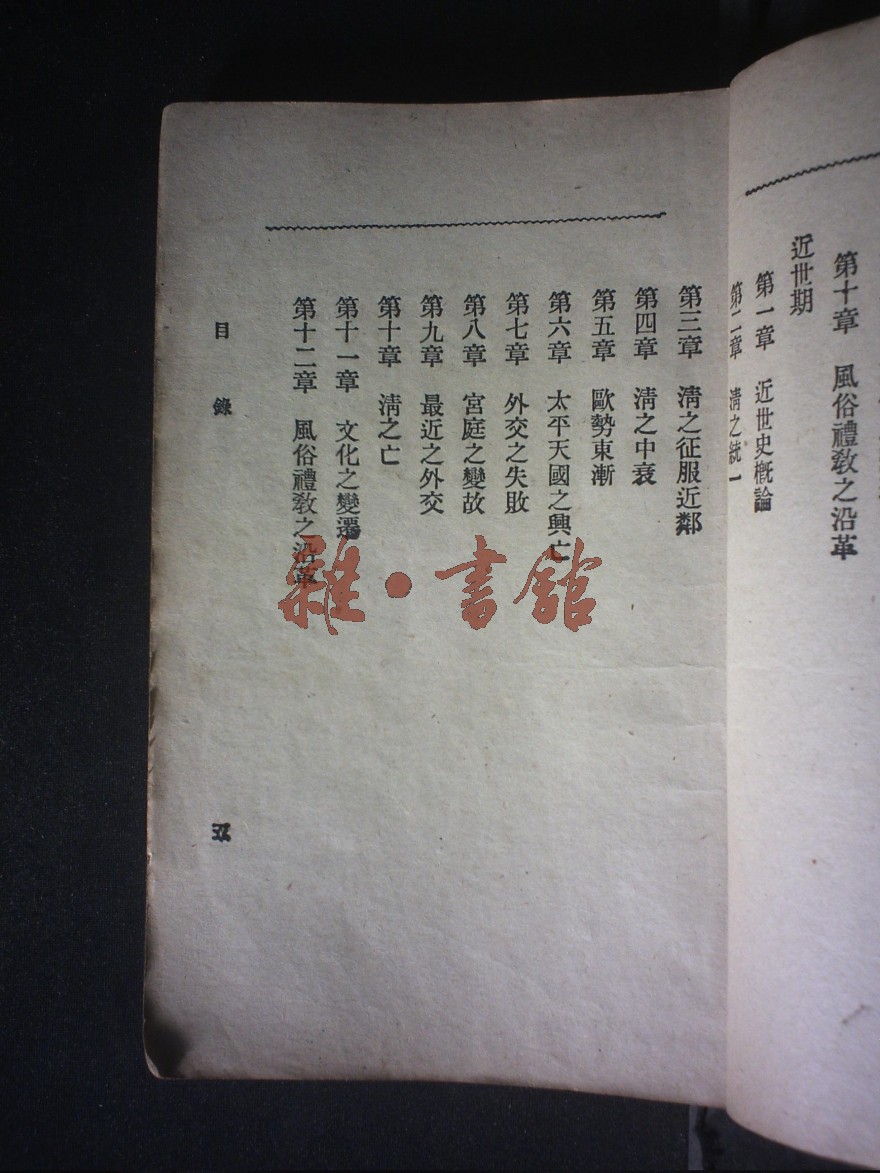 第十章　風俗禮敎之沿革
近世期
第一章　近世史槪論
第二章　淸之統一
第三章　淸之征服近鄰
第四章　淸之中衰
第五章　歐勢東漸
第六章　太平天國之興亡
第七章　外交之失敗
第八章　宮庭之變故
第九章　最近之外交
第十章　淸之亡
第十一章　文化之變遷
第十二章　風俗禮敎之沿革
目錄
五
雜·書館